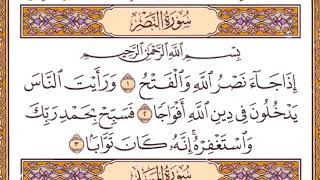 سُورَةُ النَّصْرِ
بِسْمِ اللَّهِ الرَّحْمَٰنِ الرَّحِيمِ
إِذَا جَاءَ نَصْرُ اللَّهِ وَالْفَتْحُ ١ وَرَأَيْتَ النَّاسَ
يَدْخُلُونَ فِي دِينِ اللَّهِ أَفْوَاجًا ٢ فَسَبِّحْ بِحَمْدِ رَبِّكَ
وَاسْتَغْفِرْهُ إِنَّهُ كَانَ تَوَّابًا ٣
سُورَةُ المَسَدِ